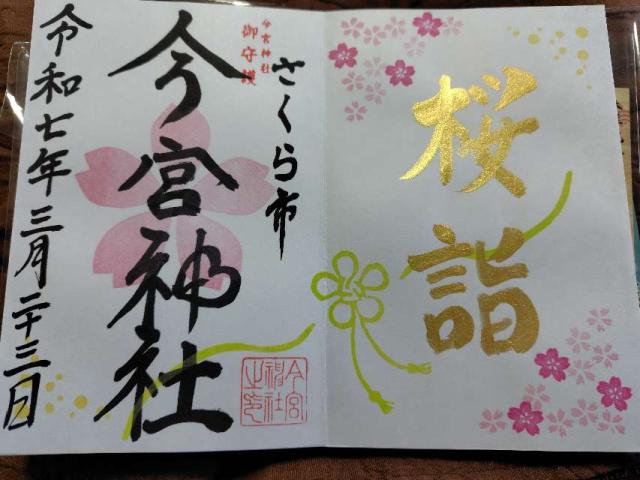 桜詣
さくら市
今宮神社
御守護
今宮神社
令和七年三月二十三日
今宮
神社
之印